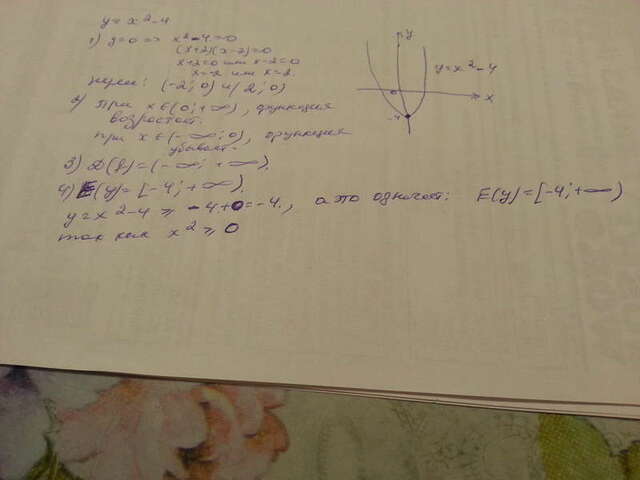 y = x²-4
1) y=0 => x²-4=0
(x+2)(x-2)=0
x+2=0 или x-2=0
x=-2 или x=2.
нули: (-2; 0) и (2; 0)
2) при x∈(0; +∞), функция
возрастает.
при x∈(-∞; 0), функция
убывает.
3) D(f)=(-∞; +∞).
4) E(y)=[-4; +∞).
y=x²-4 ⩾ -4+0=-4., а это означает: E(y)=[-4; +∞)
так как x² ⩾ 0
y
y=x²-4
0
x
-4